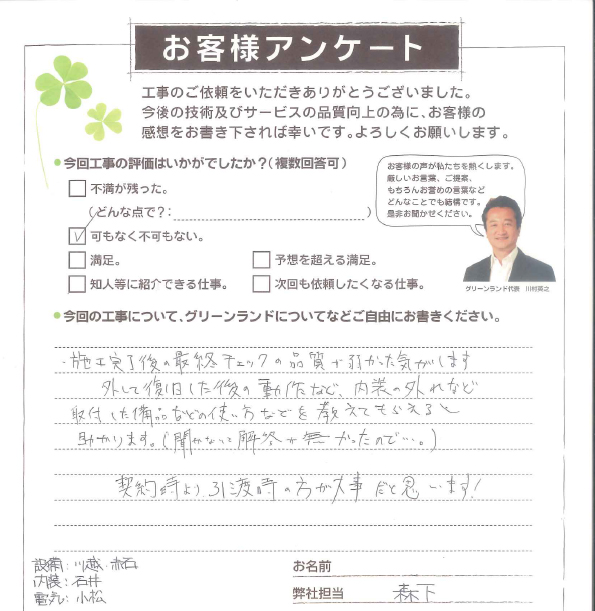 お客様アンケート
工事のご依頼をいただきありがとうございました。
今後の技術及びサービスの品質向上の為に、お客様の
感想をお書き下されば幸いです。よろしくお願いします。
今回工事の評価はいかがでしたか？(複数回答可)
不満が残った。
(どんな点で？: )
可もなく不可もない。
満足。
予想を超える満足。
知人等に紹介できる仕事。
次回も依頼したくなる仕事。
お客様の声が私たちを熱くします。
厳しいお言葉、ご提案、
もちろんお誉めの言葉など
どんなことでも結構です。
是非お聞かせください。
グリーンランド代表 川村英之
今回の工事について、グリーンランドについてなどご自由にお書きください。
・施工完了後の最終チェックの品質が弱かった気がします
外して復旧した後の動作など、内装の外れなど
取付した備品などの使い方などを教えてもらえると
助かります。(聞かないと解答が無かったので…。)
契約時より引渡時の方が大事だと思います!
設備: 川越 赤石
内装: 石井
電気: 小松
お名前
弊社担当 森下